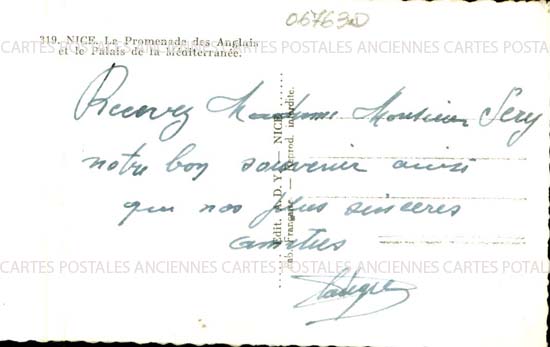 06763
319. NICE. La Promenade des Anglais
et le Palais de la Méditerranée.
Recevez Madame Monsieur Sery
notre bon souvenir ainsi
que nos plus sincères
amitiés
Edit. A.D.Y.A. — NICE
Fab. Française — Reprod. interdite.
CARTES POSTALES ANCIENNES CARTES POSTALES ANCIENNES CARTES POSTALES
CARTES POSTALES ANCIENNES CARTES POSTALES ANCIENNES CARTES POSTAL